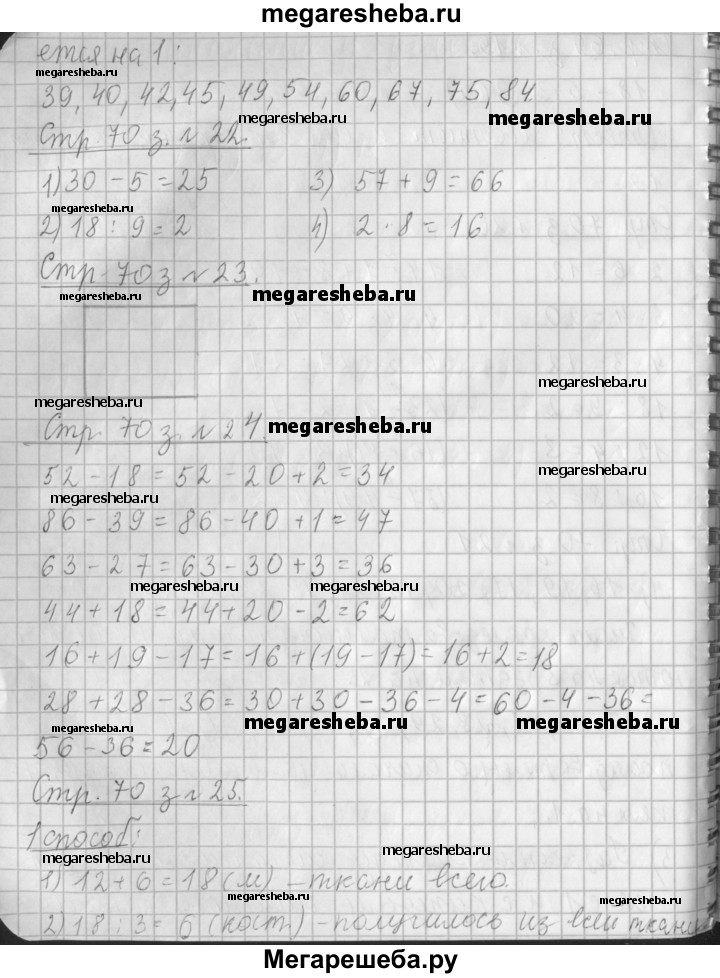 megaresheba.ru
ется на 1:
megaresheba.ru
39, 40, 42, 45, 49, 54, 60, 67, 75, 84.
megaresheba.ru megaresheba.ru
Стр 70 з. № 22.
1) 30 - 5 = 25 3) 57 + 9 = 66
megaresheba.ru
2) 18 : 9 = 2 4) 2 · 8 = 16
Стр. 70 з № 23.
megaresheba.ru megaresheba.ru
megaresheba.ru
megaresheba.ru
Стр. 70 з. № 24.
megaresheba.ru
52 - 18 = 52 - 20 + 2 = 34
megaresheba.ru
megaresheba.ru
86 - 39 = 86 - 40 + 1 = 47
63 - 27 = 63 - 30 + 3 = 36
megaresheba.ru megaresheba.ru
44 + 18 = 44 + 20 - 2 = 62
16 + 19 - 17 = 16 + (19 - 17) = 16 + 2 = 18
28 + 28 - 36 = 30 + 30 - 36 - 4 = 60 - 4 - 36 =
megaresheba.ru megaresheba.ru megaresheba.ru
56 - 36 = 20
Стр. 70 з № 25.
1 способ:
megaresheba.ru megaresheba.ru
1) 12 + 6 = 18 (м) - ткани всего.
megaresheba.ru
2) 18 : 3 = 6 (кост.) - получилось из всей ткани
megaresheba.ru
Мегарешеба.ру